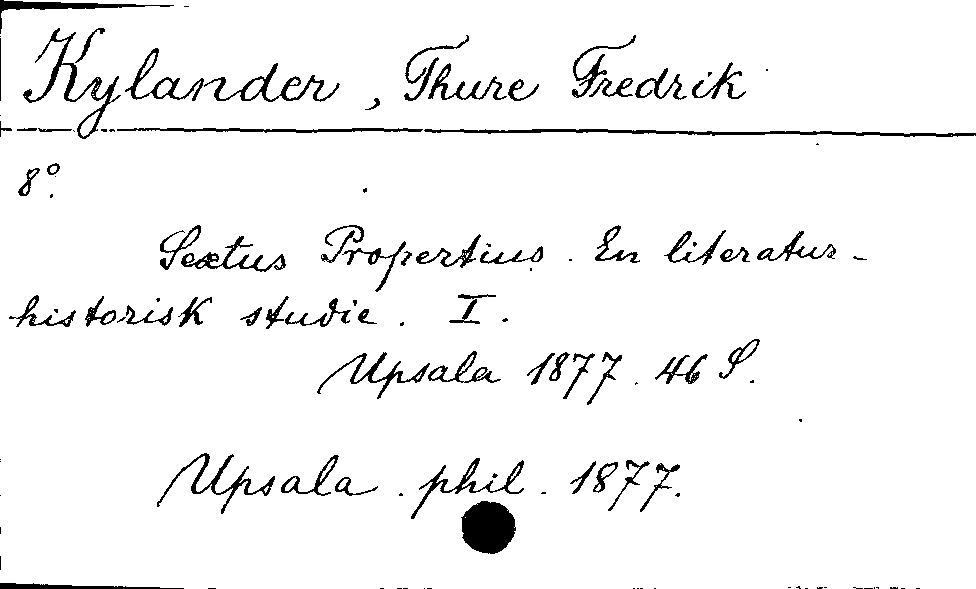 Kylander, Thure Fredrik
8°.
Sextus Propertius. En literatur-
historisk studie. I.
Upsala 1877. 46 S.
Upsala. phil. 1877.